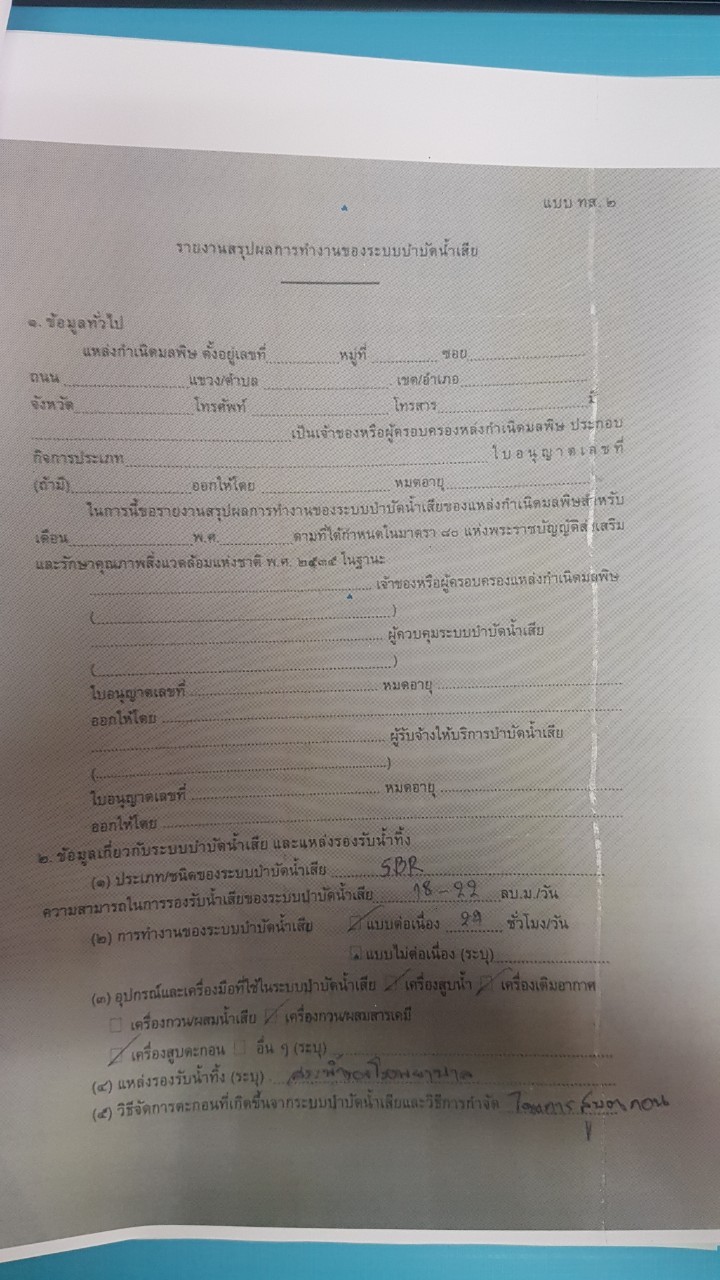 แบบ ทส. ๒
รายงานสรุปผลการทำงานของระบบบำบัดน้ำเสีย
๑. ข้อมูลทั่วไป
แหล่งกำเนิดมลพิษ ตั้งอยู่เลขที่..............หมู่ที่..............ซอย..............
ถนน..............แขวง/ตำบล..............เขต/อำเภอ..............
จังหวัด..............โทรศัพท์..............โทรสาร..............มี
..............เป็นเจ้าของหรือผู้ครอบครองหล่งกำเนิดมลพิษ ประกอบ
กิจการประเภท..............ใบอนุญาตเลขที่
(ถ้ามี)..............ออกให้โดย..............หมดอายุ..............
ในการนี้ขอรายงานสรุปผลการทำงานของระบบบำบัดน้ำเสียของแหล่งกำเนิดมลพิษสำหรับ
เดือน..............พ.ศ...............ตามที่ได้กำหนดในมาตรา ๘๐ แห่งพระราชบัญญัติส่งเสริม
และรักษาคุณภาพสิ่งแวดล้อมแห่งชาติ พ.ศ. ๒๕๓๕ ในฐานะ
..............เจ้าของหรือผู้ครอบครองแหล่งกำเนิดมลพิษ
(..............)
..............ผู้ควบคุมระบบบำบัดน้ำเสีย
(..............)
ใบอนุญาตเลขที่..............หมดอายุ..............
ออกให้โดย..............
..............ผู้รับจ้างให้บริการบำบัดน้ำเสีย
(..............)
ใบอนุญาตเลขที่..............หมดอายุ..............
ออกให้โดย..............
๒. ข้อมูลเกี่ยวกับระบบบำบัดน้ำเสีย และแหล่งรองรับน้ำทิ้ง
(๑) ประเภท/ชนิดของระบบบำบัดน้ำเสีย SBR
ความสามารถในการรองรับน้ำเสียของระบบบำบัดน้ำเสีย 18-22 ลบ.ม./วัน
(๒) การทำงานของระบบบำบัดน้ำเสีย แบบต่อเนื่อง ชั่วโมง/วัน
แบบไม่ต่อเนื่อง (ระบุ)..............
(๓) อุปกรณ์และเครื่องมือที่ใช้ในระบบบำบัดน้ำเสีย เครื่องสูบน้ำ เครื่องเติมอากาศ
เครื่องกวน/ผสมน้ำเสีย เครื่องกวน/ผสมสารเคมี
เครื่องสูบตะกอน อื่น ๆ (ระบุ)..............
(๔) แหล่งรองรับน้ำทิ้ง (ระบุ)
(๕) วิธีจัดการตะกอนที่เกิดขึ้นจากระบบบำบัดน้ำเสียและวิธีการกำจัด